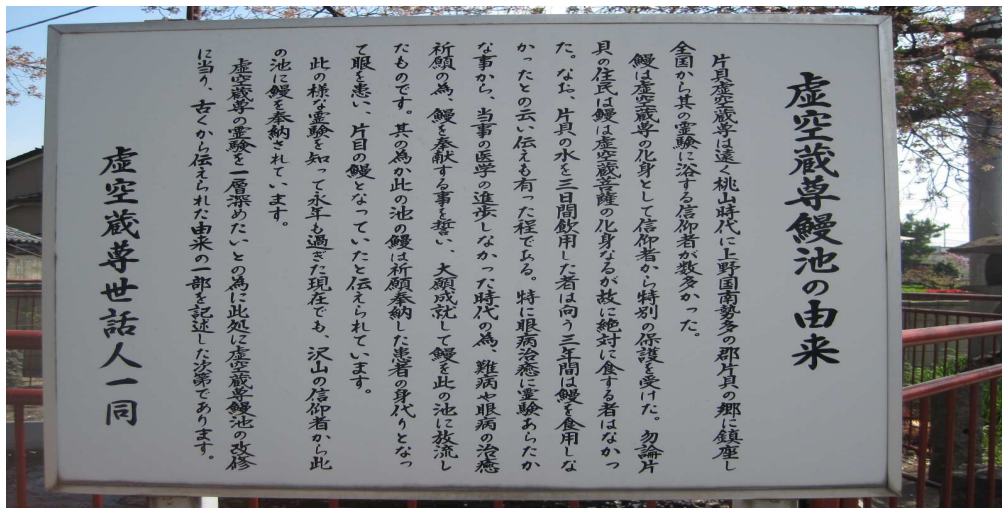 虚空蔵尊鰻池の由来
片貝虚空蔵尊は遠く桃山時代に上野国南勢多の郡片貝の郷に鎮座し
全国から其の霊験に浴する信仰者が数多かった。
鰻は虚空蔵尊の化身として信仰者から特別の保護を受けた。勿論片
貝の住民は鰻は虚空蔵菩薩の化身なるが故に絶対に食する者はなかっ
た。なお、片貝の水を三日間飲用した者は向う三年間は鰻を食用しな
かったとの云い伝えも有った程である。特に眼病治癒に霊験あらたか
な事から、当事の医学の進歩しなかった時代の為、難病や眼病の治癒
祈願の為、鰻を奉献する事を誓い、大願成就して鰻を此の池に放流し
たものです。其の為か此の池の鰻は祈願奉納した患者の身代りとなっ
て眼を患い、片目の鰻となっていたと伝えられています。
此の様な霊験を知って永年も過ぎた現在でも、沢山の信仰者から此
の池に鰻を奉納されています。
虚空蔵尊の霊験を一層深めたいとの為に此処に虚空蔵尊鰻池の改修
に当り、古くから伝えられた由来の一部を記述した次第であります。
虚空蔵尊世話人一同